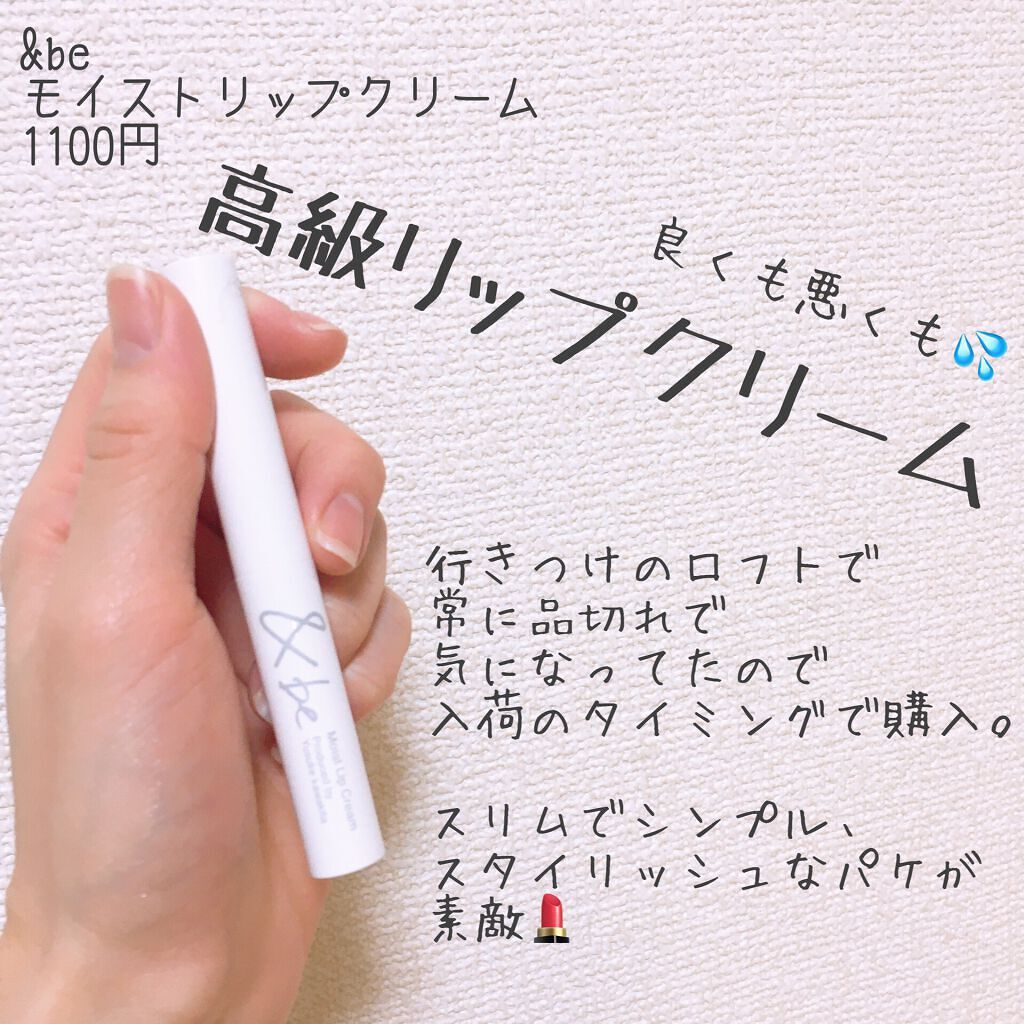 &be
モイストリップクリーム
1100円
良くも悪くも💦
高級リップクリーム
行きつけのロフトで
常に品切れで
気になってたので
入荷のタイミングで購入。
スリムでシンプル、
スタイリッシュなパケが
素敵💄
&be
Moist Lip Cream
Produced by
Yusuke Kawakita